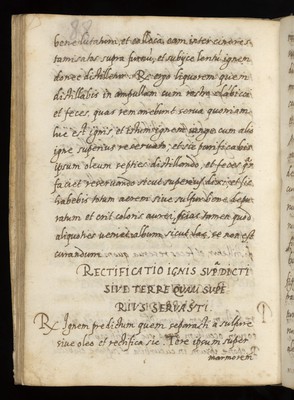 bene lutatum, et colloca eam inter cineres
tamisatos supra furnū, et subijce lentū ignem
donec distilletur. Rc ergo liquorem quem
distillabis in ampullam cum rostro, elabica
et feces, quas remanebunt serua quoniam
hic est ignis et istum ignem iunge cum alio
igne superius reseruato, et sic purificabis
ipsum oleum septies distillando, et feces
faciet reseruando sicut superius dixi, et sic
habebis totum aerem siue sulfur bene depu
ratum et erit coloris aurei, sciat tamen quod
aliquotiens ueniet album sicut lac, se non est
curandum.
RECTIFICATIO IGNIS SVPᴬDICTI
SIVE TERRE QVAM SVPE
RIVS SERVASTI.
Rc Ignem predictum quem separasti a sulfure
siue oleo et rectifica sic. Tere ipsum super
marmorem